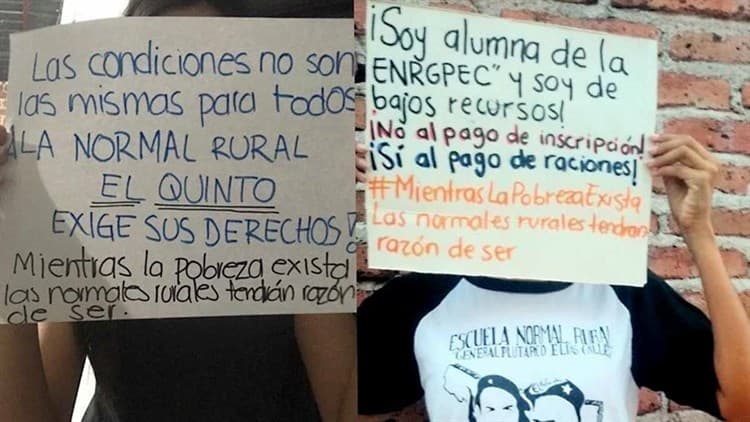 Las condiciones no son
las mismas para todos
¡LA NORMAL RURAL
EL QUINTO
EXIGE SUS DERECHOS!
Mientras la pobreza exista
las normales rurales tendrán razón
de ser.
¡Soy alumna de la
ENRGPEC" y soy de
bajos recursos!
¡No al pago de inscripción!
¡Sí al pago de raciones!
#MientrasLaPobrezaExista
Las normales rurales tendran
razón de ser
ESCUELA NORMAL RURAL
GENERAL PLUTARCO ELIAS CALLES